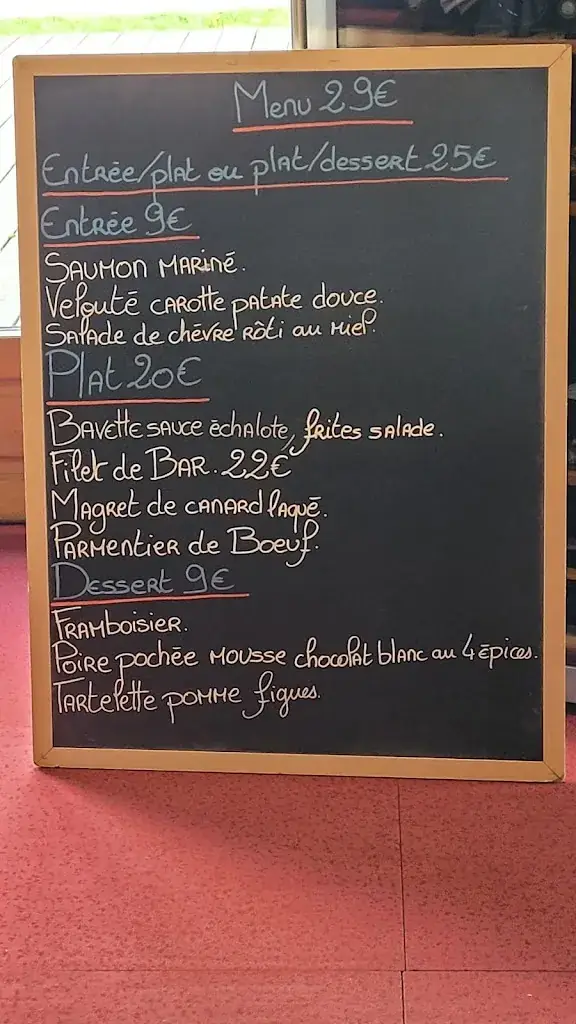 Menu 29€
Entrée/plat ou plat/dessert 25€
Entrée 9€
Saumon mariné.
Velouté carotte patate douce.
Salade de chévre rôti au miel.
Plat 20€
Bavette sauce échalote, frites salade.
Filet de Bar. 22€
Magret de canard laqué.
Parmentier de Boeuf.
Dessert 9€
Framboisier.
Poire pochée mousse chocolat blanc au 4 épices.
Tartelette pomme figues.